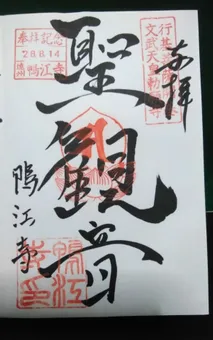 奉拝
行基菩薩開基
文武天皇勅願寺
聖観音
奉拝記念
26.6.14
鴨江寺
鴨江寺
鴨江